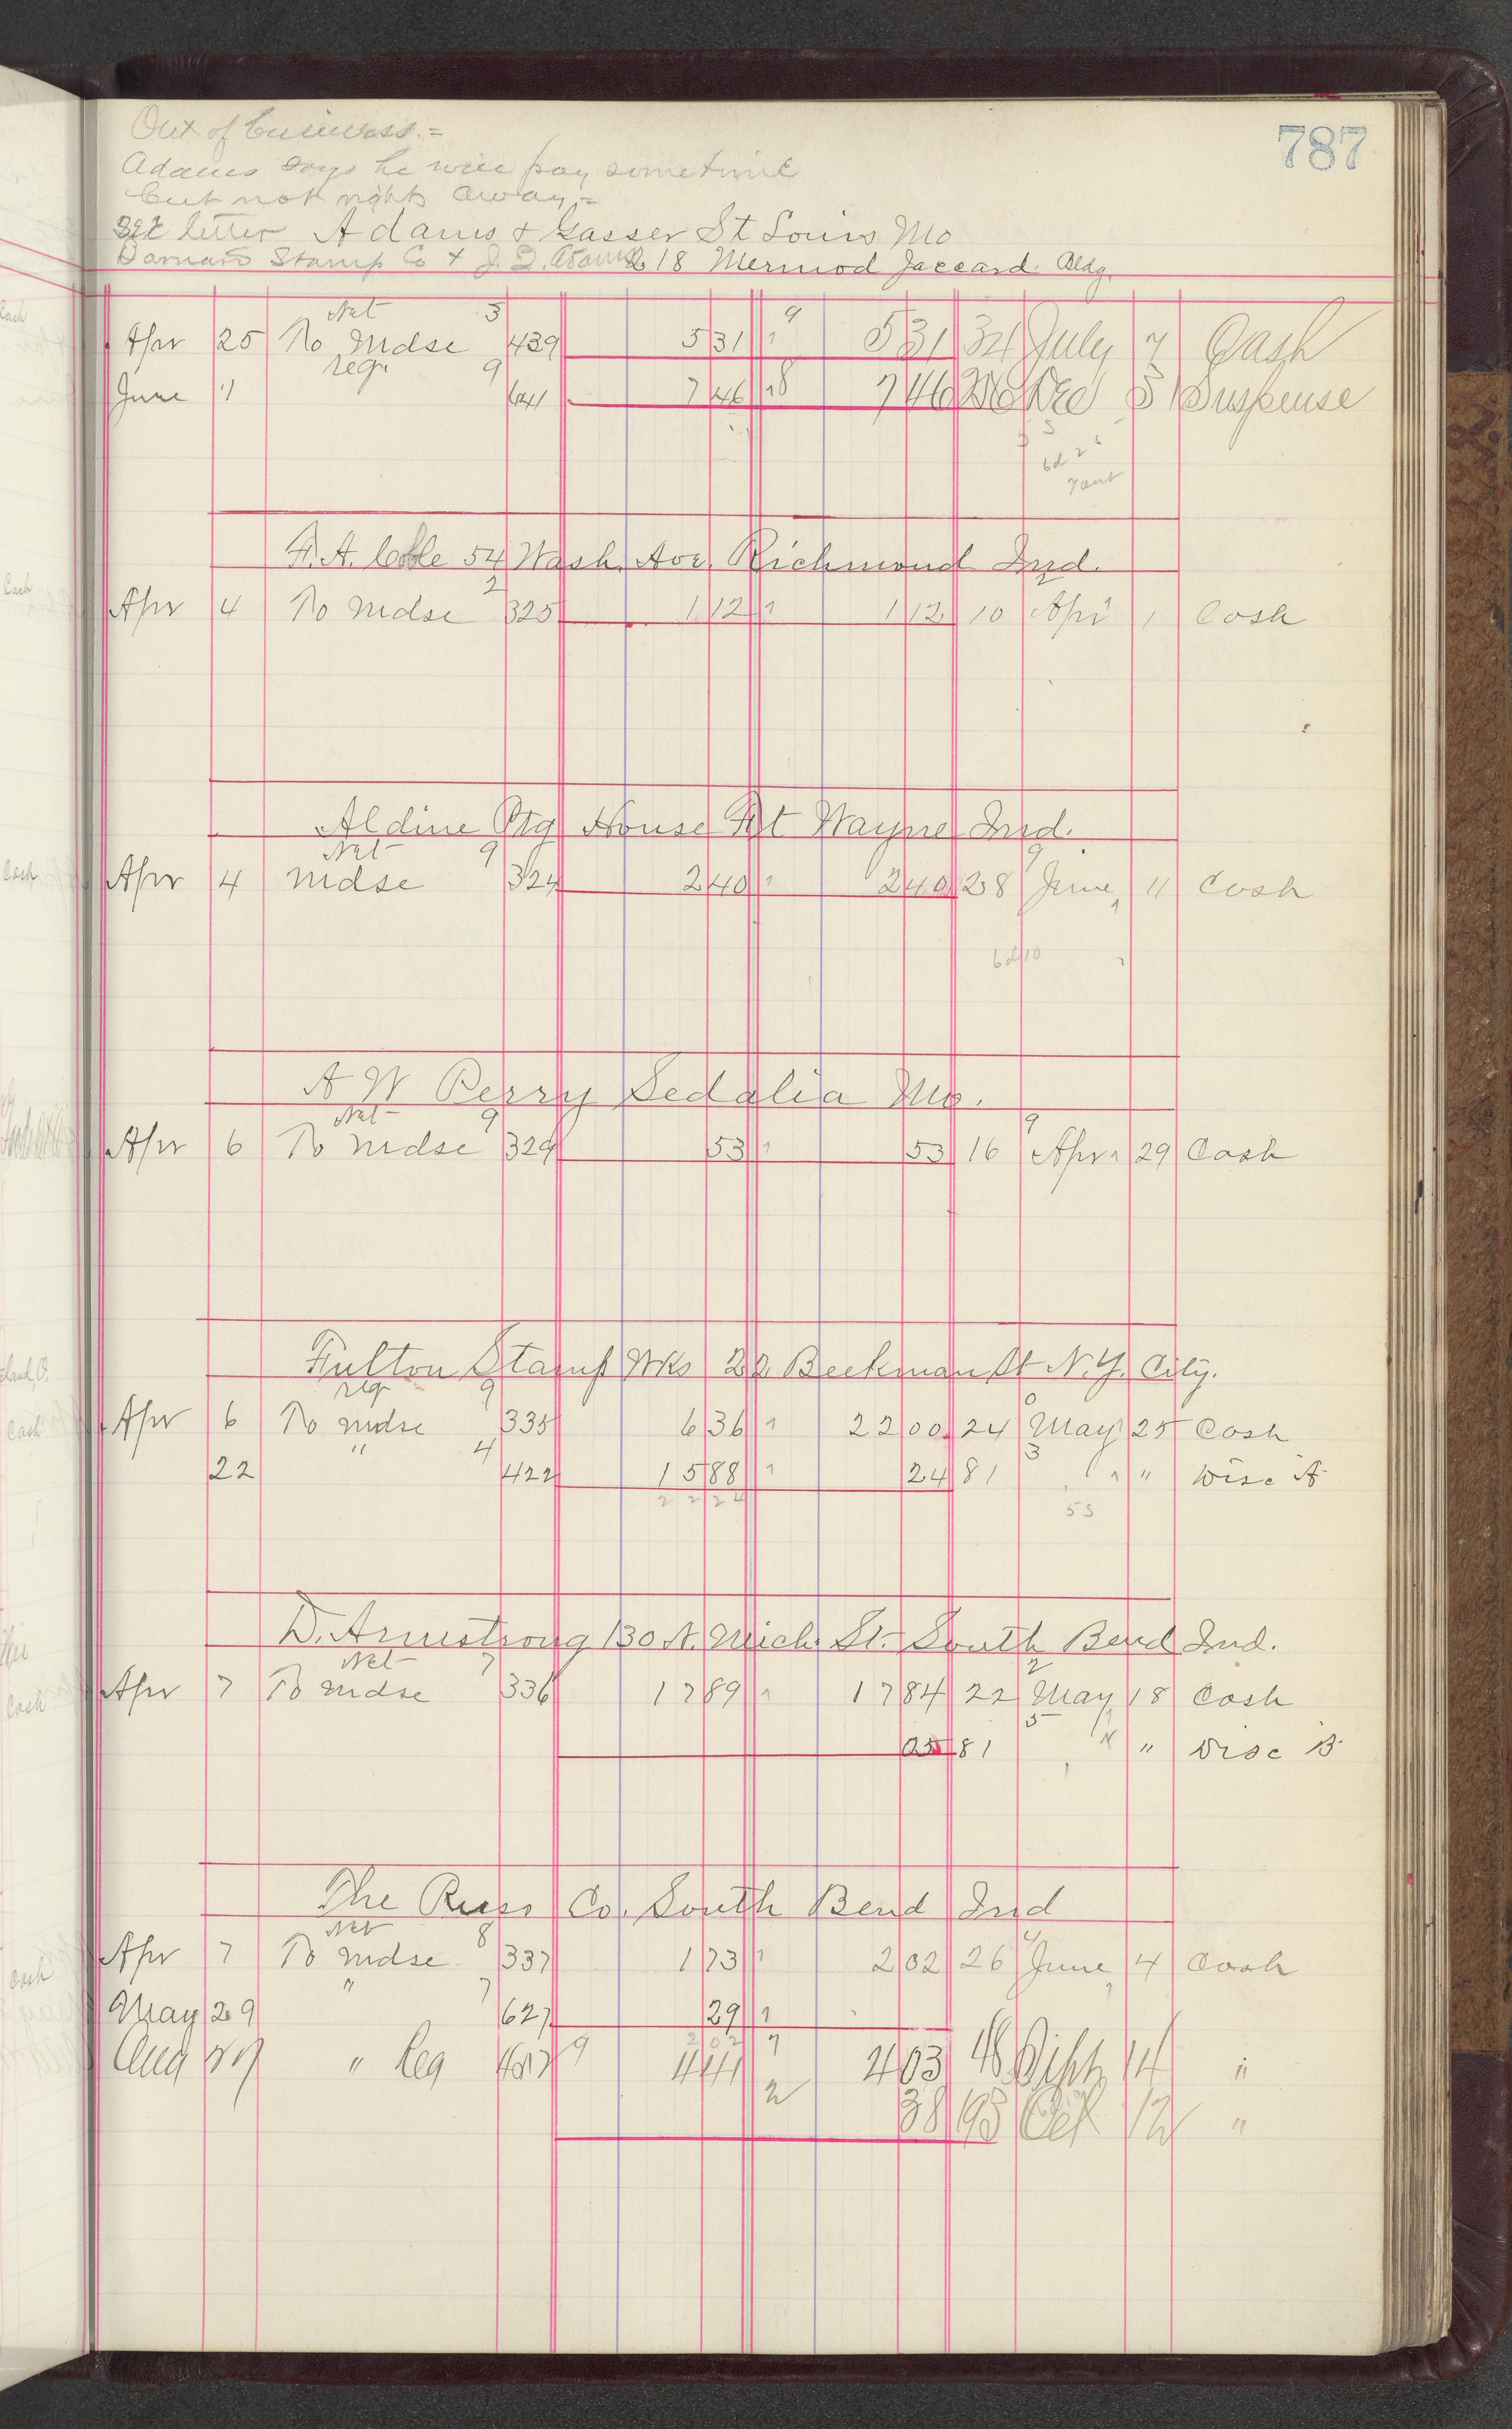 787
Out of business.=
Adams says he will pay sometime
but not right away,=
see letter Adams & Gasser St Louis Mo
Barnard Stamp Co & J. Q. Adams 218 Mermod Jaccard Bldg.
Net 3 9
Apr 25 To mdse 439 5 31 5 31 34 July 7 Cash
reg. 9
June 1 641 7 46 7 46 Dec 31 Suspense
F. A. Cole 54 Wash. Ave. Richmond Ind.
2
Apr 4 To mdse 325 1 12 1 12 10 Apr 1 Cash
Aldine Ptg House Ft Wayne Ind.
Net 9 9
Apr 4 mdse 324 2 40 2 40 28 June 11 Cash
bd 10
A W Perry Sedalia Mo.
Net 9 9
Apr 6 To mdse 329 53 53 16 Apr 29 Cash
Fulton Stamp Wks 22 Beekman St N.Y. City.
reg 9 0
Apr 6 To mdse 335 6 36 22 00 24 May 25 Cash
" 4 3
22 422 15 88 24 81 " Disc A
22 24 55
D. Armstrong 130 N. Mich. St. South Bend Ind.
Net 7 2
Apr 7 To mdse 336 17 89 17 84 22 May 18 Cash
5
05 81 " " Disc B
The Russ Co. South Bend Ind
Net 8
Apr 7 To mdse 337 1 73 2 02 26 June 4 Cash
" 7
May 29 627 29
2 02
Aug " Reg 9 4 41 4 03 46 Sept 14 "
2
38 93 Oct 12 "